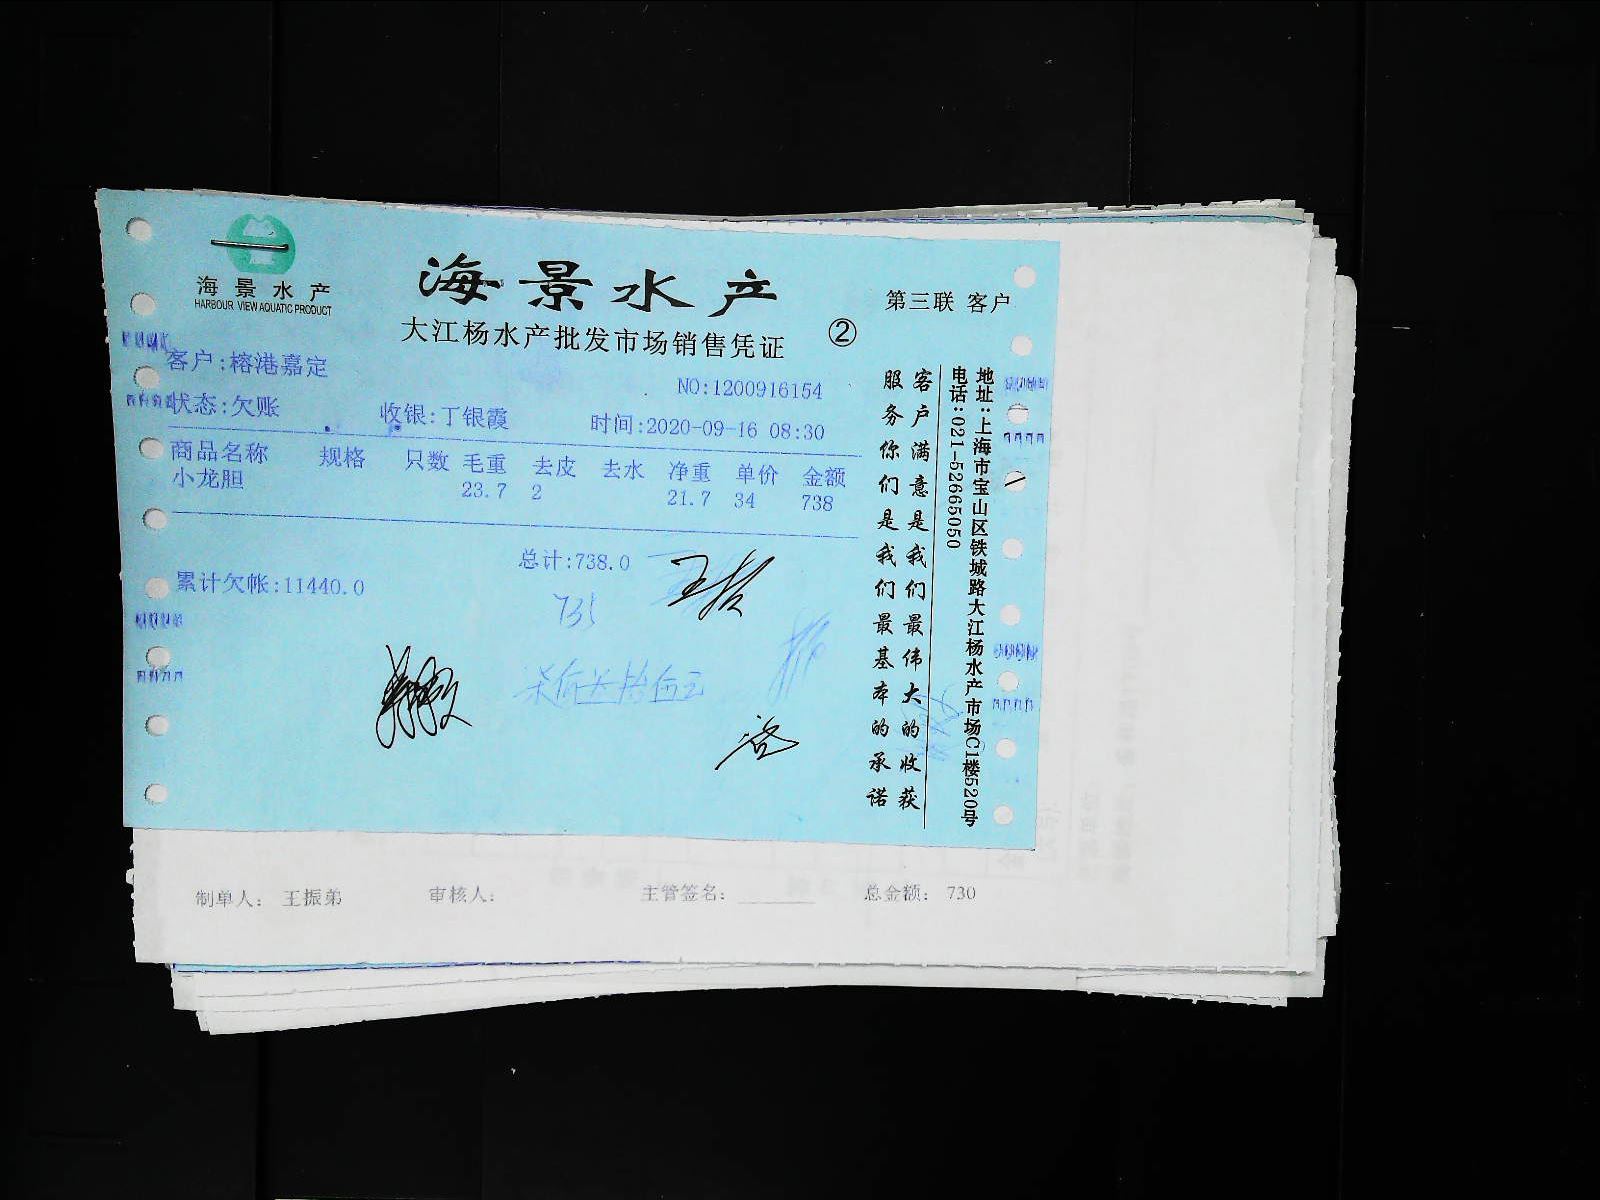 海景水产
HARBOUR VIEW AQUATIC PRODUCT
海景水产
大江杨水产批发市场销售凭证
②
第三联 客户
客户:榕港嘉定
NO:1200916154
状态:欠账 收银:丁银霞 时间:2020-09-16 08:30
商品名称 规格 只数 毛重 去皮 去水 净重 单价 金额
小龙胆 23.7 2 21.7 34 738
总计:738.0
累计欠帐:11440.0
735
客户满意是我们最伟大的收获
服务你们是我们最基本的承诺
地址:上海市宝山区铁城路大江杨水产市场C1楼520号
电话:021-52665050
制单人: 王振弟 审核人: 主管签名: 总金额: 730